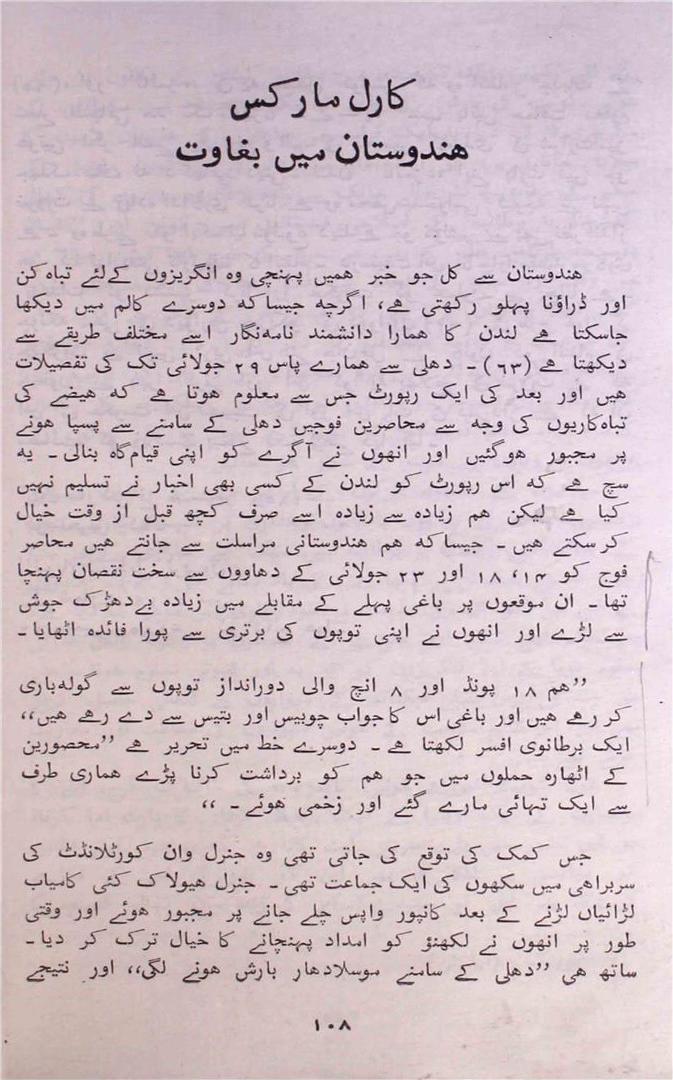 کارل مارکس
ھندوستان میں بغاوت
ھندوستان سے کل جو خبر ھمیں پہنچی وہ انگریزوں کےلئے تباہ کن
اور ڈراؤنا پہلو رکھتی ھے، اگرچہ جیساکہ دوسرے کالم میں دیکھا
جاسکتا ھے لندن کا ھمارا دانشمند نامہنگار اسے مختلف طریقے سے
دیکھتا ھے (۶۳)۔ دھلی سے ھمارے پاس ۲۹ جولائی تک کی تفصیلات
ھیں اور بعد کی ایک رپورٹ جس سے معلوم ھوتا ھے کہ ھیضے کی
تباہ‌کاریوں کی وجہ سے محاصرین فوجیں دھلی کے سامنے سے پسپا ھونے
پر مجبور ھوگئیں اور انھوں نے آگرے کو اپنی قیام‌گاہ بنالی۔ یہ
سچ ھے کہ اس رپورٹ کو لندن کے کسی بھی اخبار نے تسلیم نہیں
کیا ھے لیکن ھم زیادہ سے زیادہ اسے صرف کچھ قبل از وقت خیال
کرسکتے ھیں۔ جیساکہ ھم ھندوستانی مراسلت سے جانتے ھیں محاصر
فوج کو ۱۴، ۱۸ اور ۲۳ جولائی کے دھاووں سے سخت نقصان پہنچا
تھا۔ ان موقعوں پر باغی پہلے کے مقابلے میں زیادہ بےدھڑک جوش
سے لڑے اور انھوں نے اپنی توپوں کی برتری سے پورا فائدہ اٹھایا۔
”ھم ۱۸ پونڈ اور ۸ انچ والی دورانداز توپوں سے گولہ‌باری
کررھے ھیں اور باغی اس کا جواب چوبیس اور بتیس سے دے رھے ھیں،،
ایک برطانوی افسر لکھتا ھے۔ دوسرے خط میں تحریر ھے ”محصورین
کے اٹھارہ حملوں میں جو ھم کو برداشت کرنا پڑے ھماری طرف
سے ایک تہائی مارے گئے اور زخمی ھوئے۔ ،،
جس کمک کی توقع کی جاتی تھی وہ جنرل وان کورٹلانڈٹ کی
سربراھی میں سکھوں کی ایک جماعت تھی۔ جنرل ھیولاک کئی کامیاب
لڑائیاں لڑنے کے بعد کانپور واپس چلے جانے پر مجبور ھوئے اور وقتی
طور پر انھوں نے لکھنؤ کو امداد پہنچانے کا خیال ترک کر دیا۔
ساتھ ھی ”دھلی کے سامنے موسلادھار بارش ھونے لگی،، اور نتیجے
۱۰۸